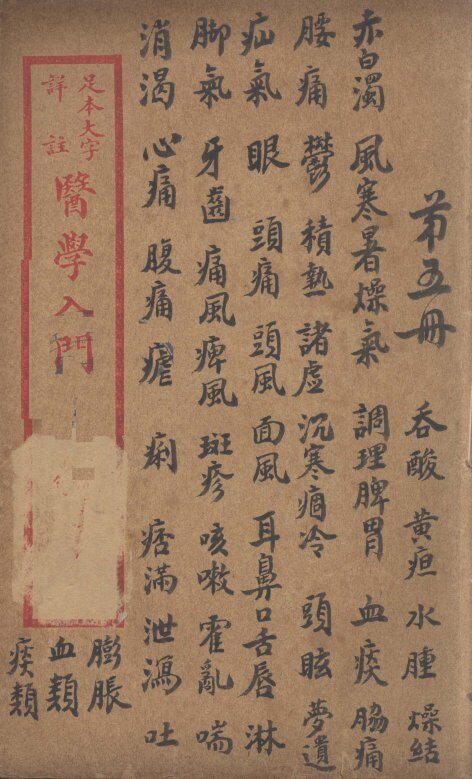 第五冊
吞酸 黄疸 水腫 燥結
赤白濁 風寒暑燥氣 調理脾胃 血痰 脇痛
腰痛 鬱 積熱 諸虛 沉寒痼冷 頭眩 夢遺
疝氣 眼 頭痛 頭風 面風 耳鼻口舌唇 淋
脚氣 牙齒 痛風 痺風 斑疹 咳嗽 霍亂 喘
消渴 心痛 腹痛 瘧 痢 痞滿 泄瀉 吐
足本大字
詳註
醫學入門
膨脹
血類
痰類